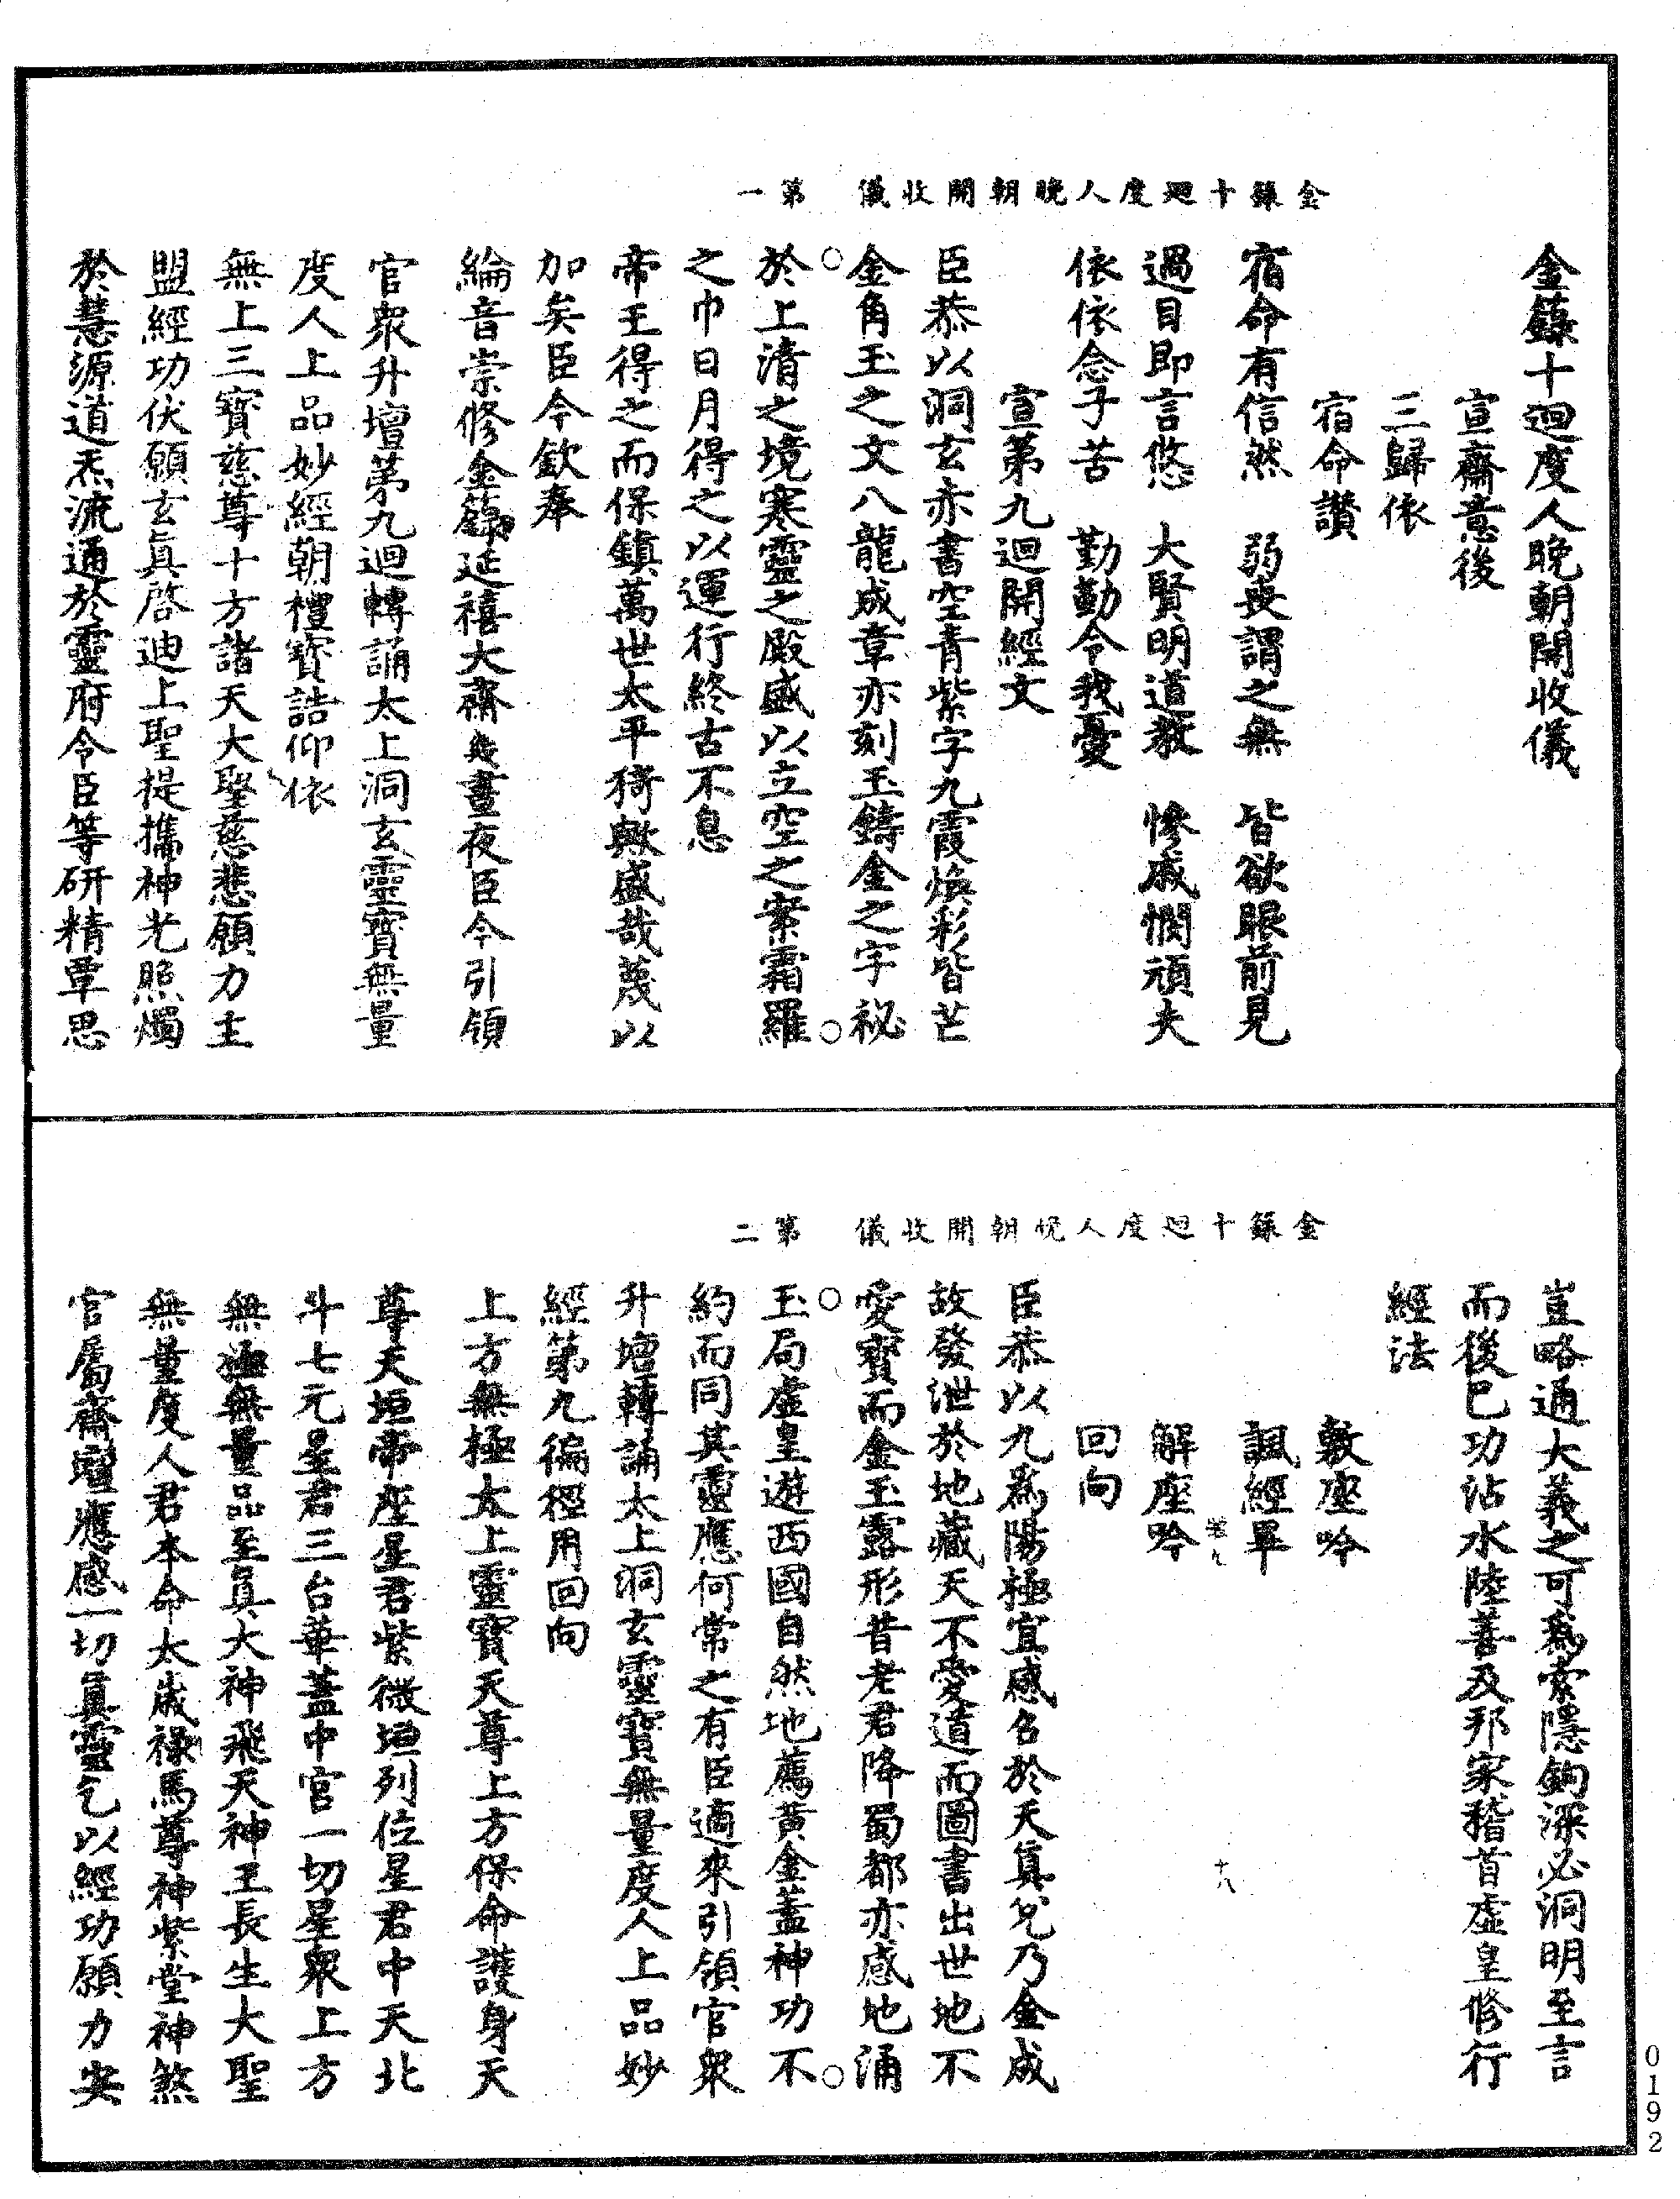 金籙十迴度人晚朝開收儀　第一
金籙十迴度人晚朝開收儀
宣齋意後
三歸依
宿命讚
宿命有信然　弱喪謂之無　皆欲眼前見
過目即言悠　大賢明道教　慘戚憫頑夫
依依念子苦　勤勤令我憂
宣第九迴開經文
臣恭以洞玄赤書空青紫字九霞煥彩皆芒
金角玉之文八龍成章亦刻玉鑄金之字祕
於上清之境寒靈之殿盛以立空之案霜羅
之巾日月得之以運行終古不息
帝王得之而保鎮萬世太平猗歟盛哉蔑以
加矣臣今欽奉
綸音崇修金籙延禧大齋幾晝夜臣今引領
官衆升壇第九迴轉誦太上洞玄靈寶無量
度人上品妙經朝禮寶誥仰依
無上三寶慈尊十方諸天大聖慈悲願力主
盟經功伏願玄眞啓迪上聖提攜神光照燭
於慧源道炁流通於靈府令臣等研精覃思
金籙十迴度人晚朝開收儀　第二
豈略通大義之可爲索隱鉤深必洞明至言
而後已功沾水陸善及邦家稽首虛皇修行
經法
敷座吟
諷經畢
解座吟
回向
臣恭以九爲陽極宜感召於天真兌乃金成
故發泄於地藏天不愛道而圖書出世地不
愛寶而金玉露形昔老君降蜀都亦感地涌
玉局虛皇遊西國自然地薦黃金蓋神功不
約而同其靈應何常之有臣適來引領官衆
升壇轉誦太上洞玄靈寶無量度人上品妙
經第九徧經用回向
上方無極太上靈寶天尊上方保命護身天
尊天垣帝座星君紫微垣列位星君中天北
斗七元星君三台華蓋中宮一切星衆上方
無極無量品至眞大神飛天神王長生大聖
無量度人君本命太歲祿馬尊神紫堂神煞
官屬齋壇應感一切真靈乞以經功願力安
十八
0192